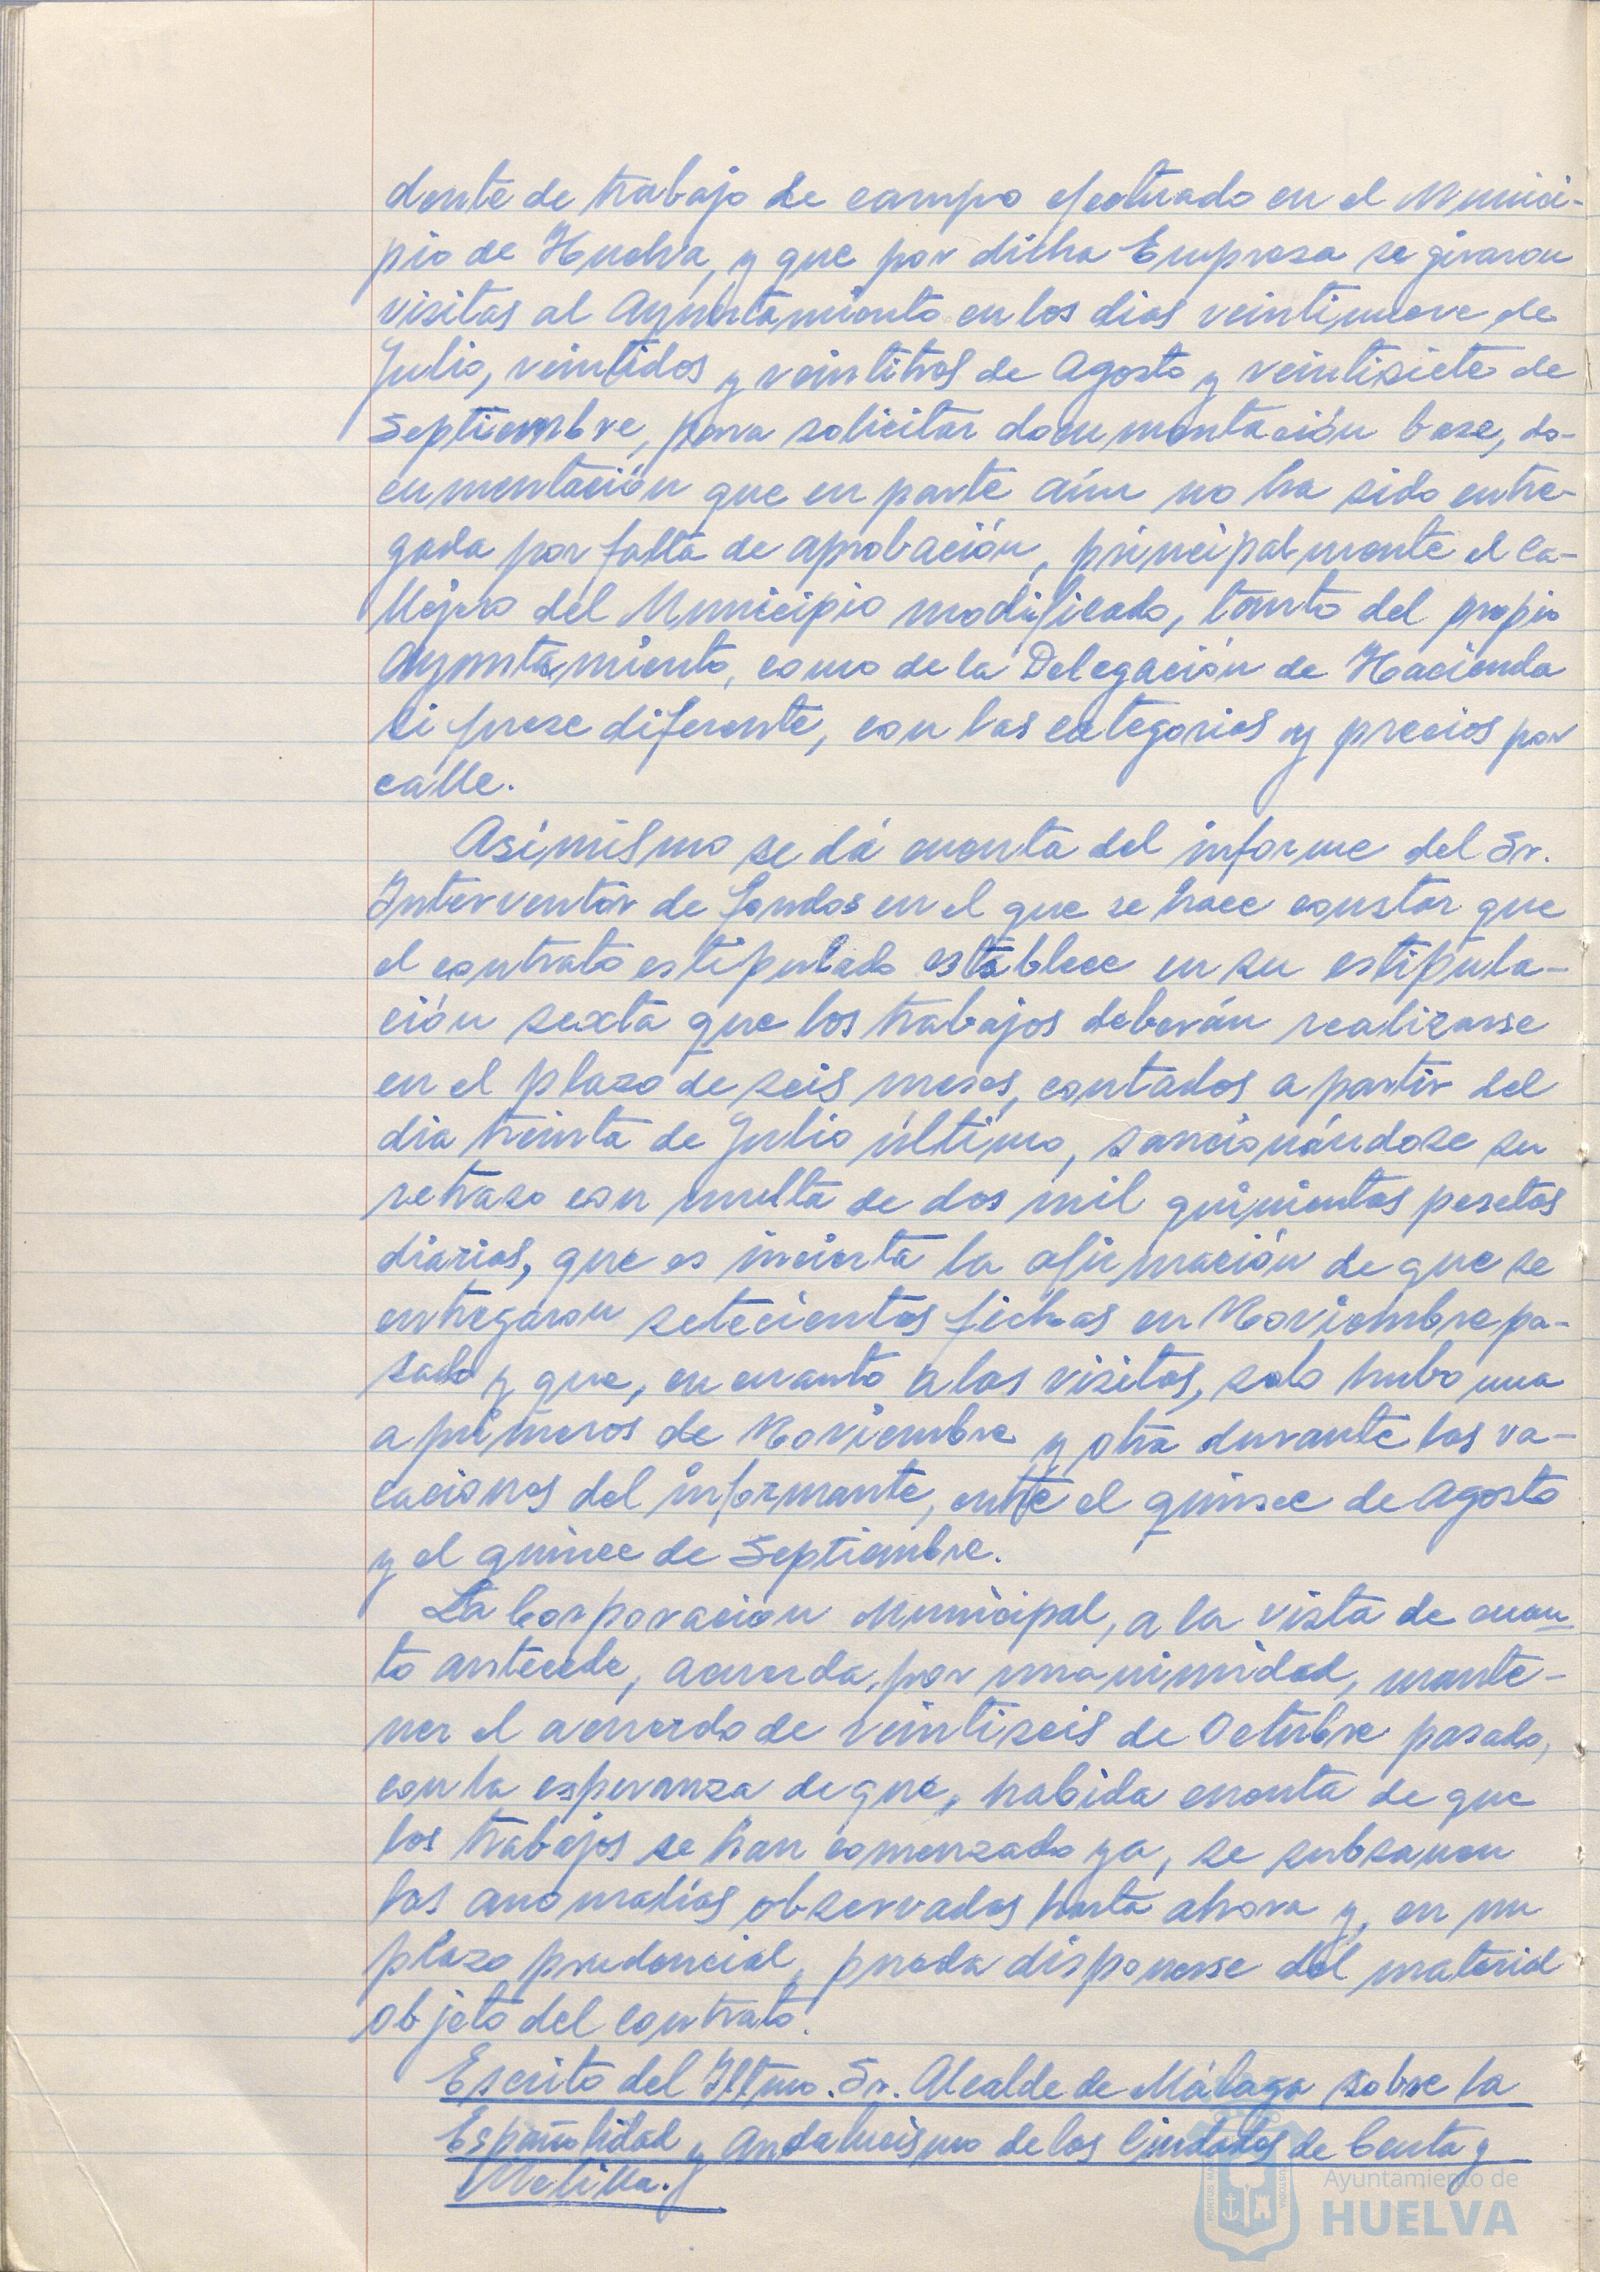 dente de trabajo de campo efectuado en el Munici-
pio de Huelva, y que por dicha Empresa se giraron
visitas al Ayuntamiento en los dias veintinueve de
Julio, veintidos y veintitres de Agosto y veintisiete de
Septiembre, para solicitar documentación base, do-
cumentación que en parte aún no ha sido entre-
gada por falta de aprobación, principalmente el Ca-
llejero del Municipio modificado, tanto del propio
Ayuntamiento, como de la Delegación de Hacienda
si fuese diferente, con las categorias y precios por
calle.
Asimismo se dá cuenta del informe del Sr.
Interventor de fondos en el que se hace constar que
el contrato estipulado establece en su estipula-
ción sexta que los trabajos deberán realizarse
en el plazo de seis meses, contados a partir del
dia treinta de Julio último, sancionándose su
retraso con multa de dos mil quinientas pesetas
diarias, que es incierta la afirmación de que se
entregaron setecientas fichas en Noviembre pa-
sado y que, en cuanto a las visitas, solo hubo una
a primeros de Noviembre y otra durante las va-
caciones del informante, entre el quince de Agosto
y el quince de Septiembre.
La Corporación Municipal, a la vista de cuan
to antecede, acuerda, por unanimidad, mante-
ner el acuerdo de veintiseis de Octubre pasado,
con la esperanza de que, habida cuenta de que
los trabajos se han comenzado ya, se subsanen
las anomalías observadas hasta ahora y, en un
plazo prudencial, pueda disponerse del material
objeto del contrato.
Escrito del Iltmo. Sr. Alcalde de Málaga sobre la
Españolidad y Andalucismo de las Ciudades de Ceuta y
Melilla.
Ayuntamiento de
HUELVA